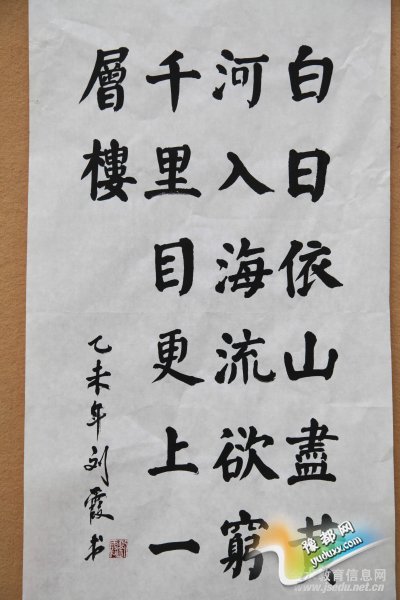 白日依山盡黄
河入海流欲窮
千里目更上一
層樓
乙未年刘霞书
豫都网
yuduxx.com
教育信息网
www.jsedu.net.cn